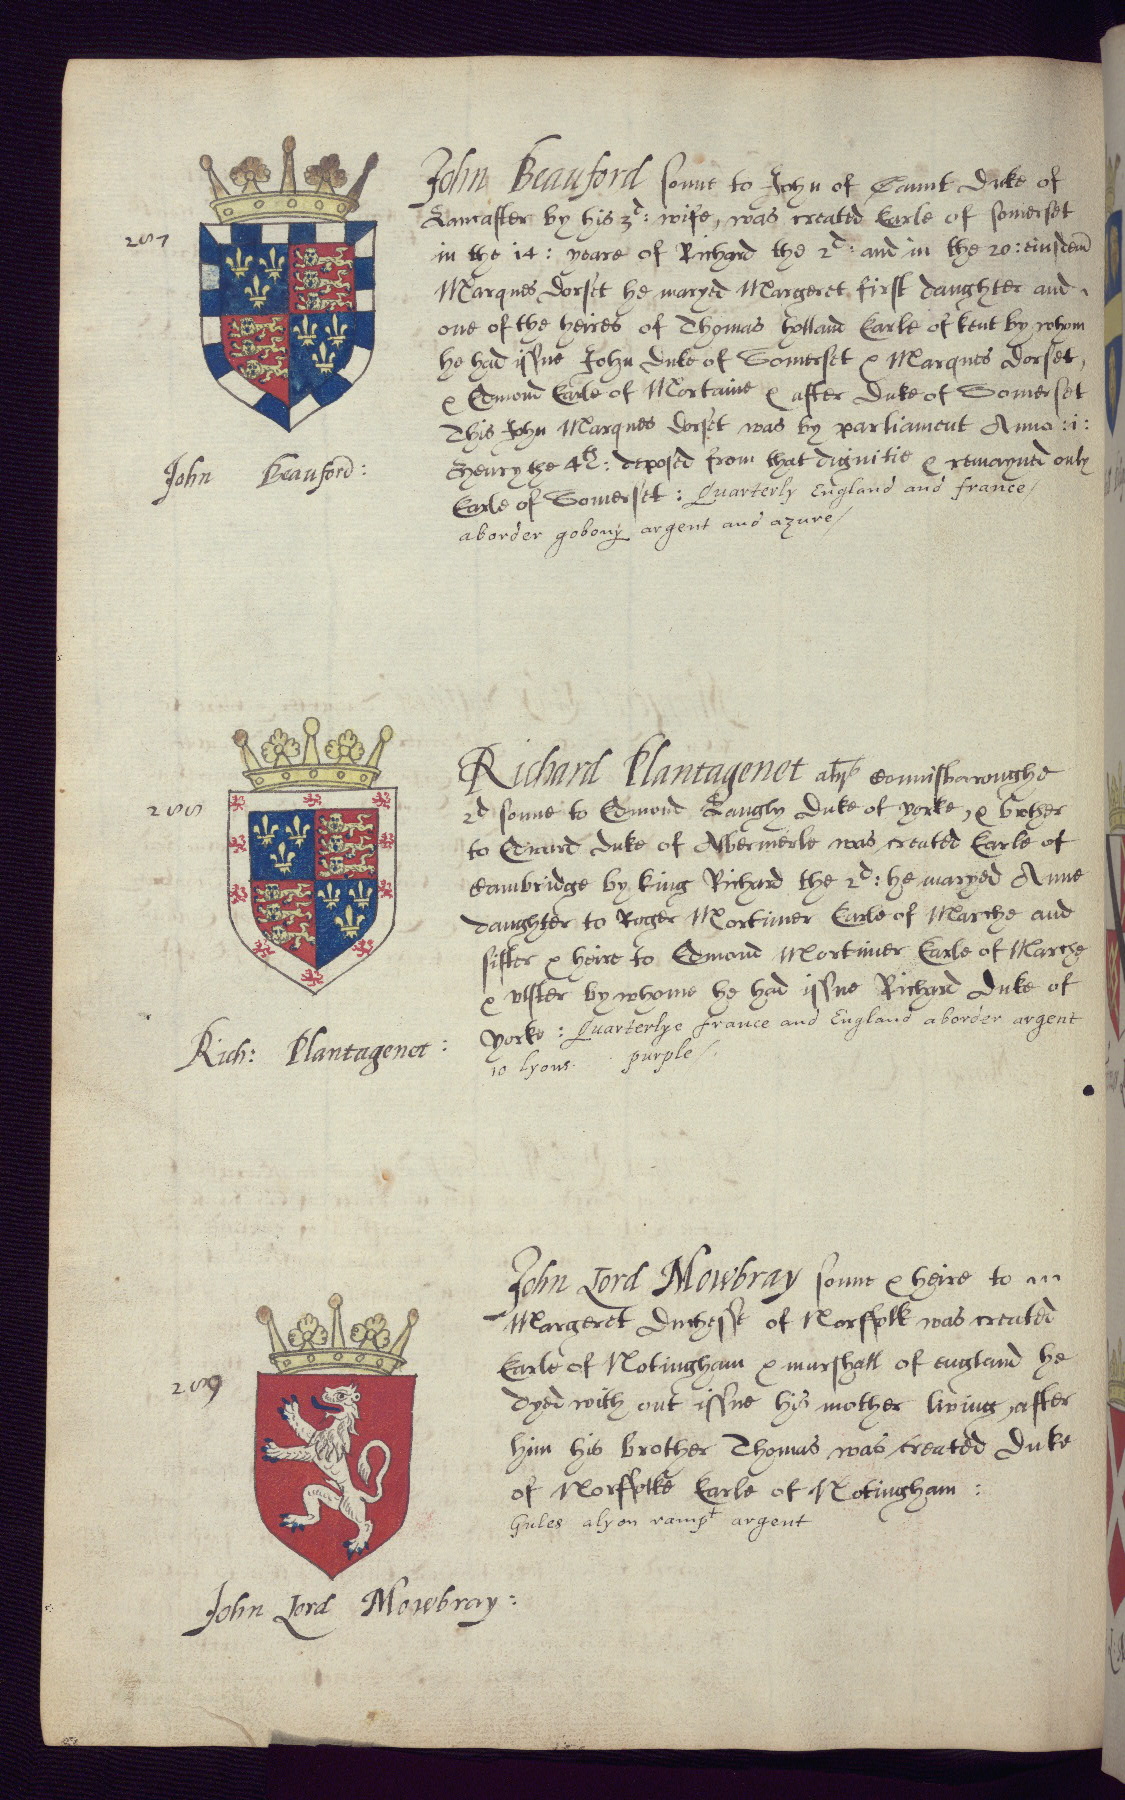 287
John Beauford sonne to John of Gaunt Duke of
Lancaster by his 3d: wife, was created Earle of Somerset
in the 14: yeare of Richard the 2d: and in the 20: eiusdem
Marques Dorset he maryed Margeret first daughter and
one of the heires of Thomas Holland Earle of Kent by whom
he had issue John Duke of Somerset & Marques Dorset,
& Edmond Earle of Mortaine & after Duke of Somerset
This John Marques Dorset was by parliament Anno :1:
Henry the 4th: deposed from that dignitie & remayned only
Earle of Somerset: Quarterly England and france/
aborder gobony argent and azure/
John Beauford:
288
Richard Plantagenet Connisborroughe
2d sonne to Edmond Langly Duke of Yorke, & brother
to Edward Duke of Albermerle was created Earle of
Cambridge by king Richard the 2d: he maryed Anne
daughter to Roger Mortimer Earle of Marche and
sister & heire to Edmond Mortimer Earle of Marche
& Ulster by whome he had issue Richard Duke of
Yorke: Quarterlye france and England aborder argent
10 lyons purple/.
Rich: Plantagenet:
289
John Lord Mowbray sonne & heire to
Margeret Duchesse of Norffolk was created
Earle of Notingham & marshall of england he
dyed with out issue his mother living, after
him his brother Thomas was created Duke
of Norffolke Earle of Notingham:
Gules alyon rampt argent
John Lord Mowbray: